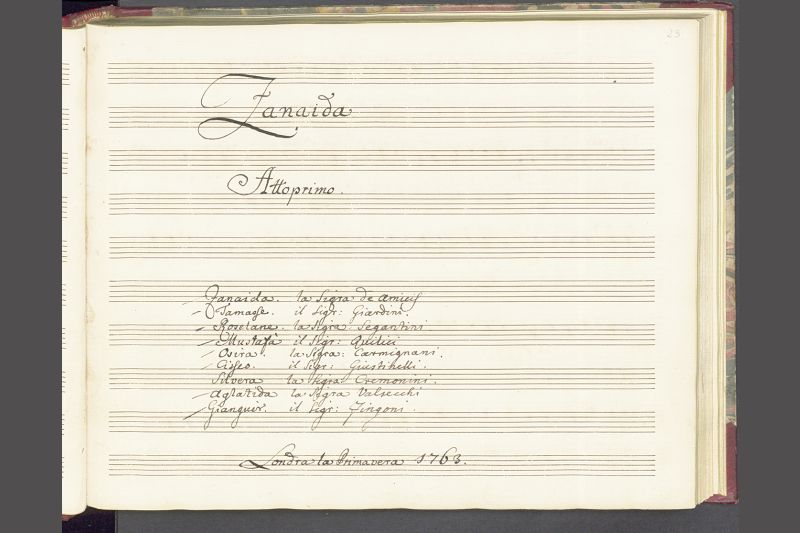 23
Zanaida
Atto primo.
Zanaida. la Sigra de Amicis
Tamasse. il Sigr: Giardini.
Roselane. la Sigra Segantini
Mustafà il Sigr: Quilici
Osira. la Sigra: Carmignani.
Cisseo. il Sigr: Giustinelli.
Silvera la Sigra: Cremonini.
Aglatida la Sigra Valsecchi
Gianguir. il Sigr: Zingoni.
Londra la Primavera 1763.